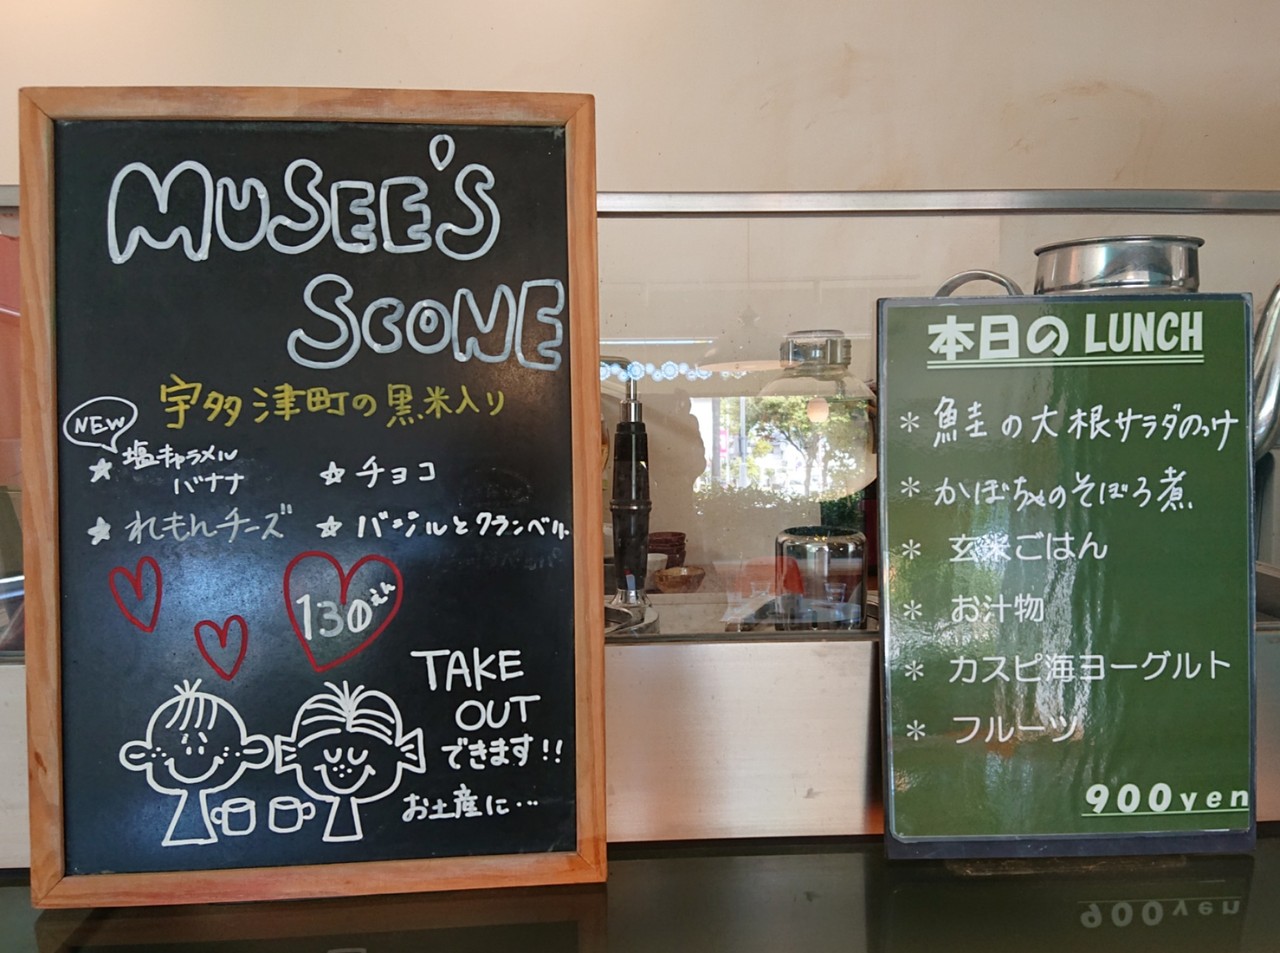 MUSEE'S
SCONE
宇多津町の黒米入り
NEW
☆ 塩キャラメル
バナナ
☆ チョコ
☆ れもんチーズ
☆ バジルとクランベリー
130えん
TAKE
OUT
できます!!
お土産に…
本日の LUNCH
* 鮭の大根サラダのっけ
* かぼちゃのそぼろ煮
* 玄米ごはん
* お汁物
* カスピ海ヨーグルト
* フルーツ
900yen